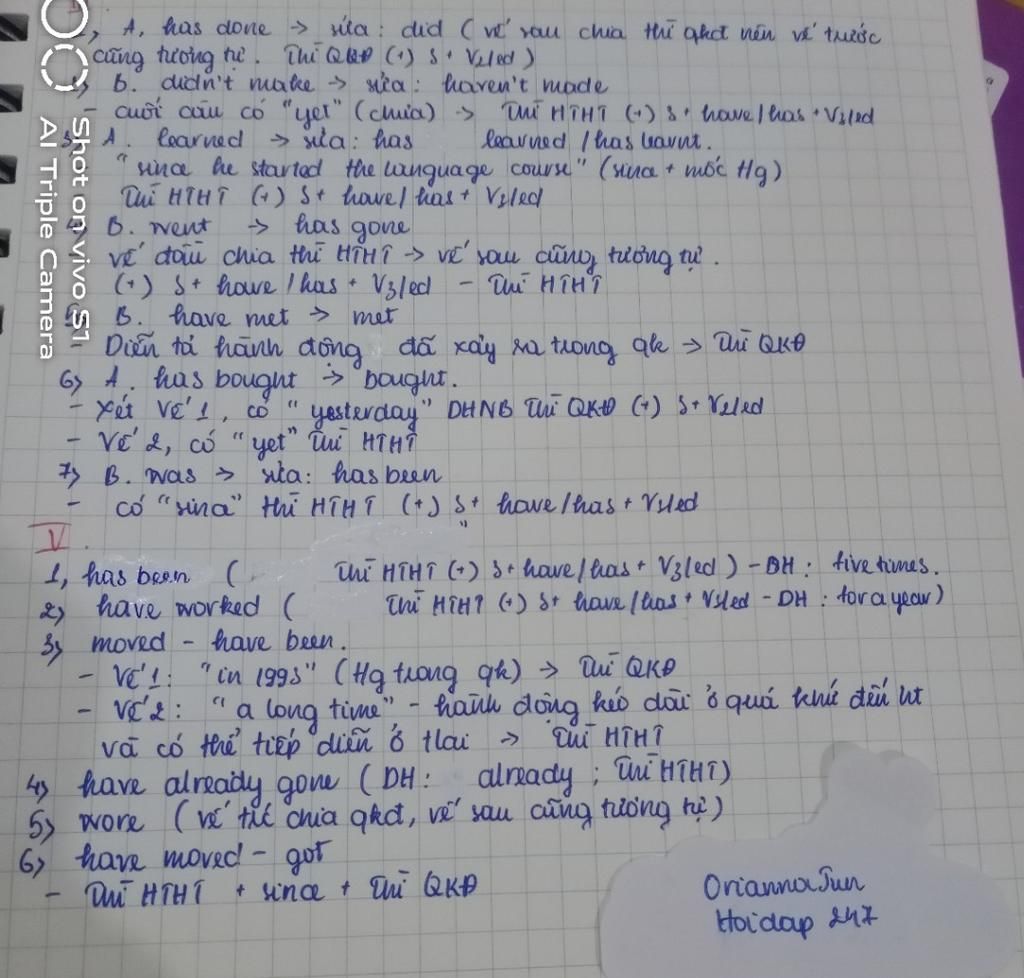 1, A, has done → sửa: did ( vế sau chia thì qkđ nên vế trước
cũng tương tự. Thì QKĐ (+) S + V2/ed )
B. didn't make → sửa: haven't made
- cuối câu có "yet" (chưa) → Thì HTHT (+) S + have/has + V3/ed
3) A. learned → sửa: has learned / has learnt.
"since he started the language course" (since + mốc tg)
Thì HTHT (+) S + have/has + V3/ed
B. went → has gone
vế đầu chia thì HTHT → vế sau cũng tương tự.
(+) S + have/has + V3/ed - Thì HTHT
5 B. have met → met
- Diễn tả hành động đã xảy ra trong qk → Thì QKĐ
6) A. has bought → bought.
- Xét Vế 1, có "yesterday" DHNB Thì QKĐ (+) S + V2/ed
- Vế 2, có "yet" Thì HTHT
7) B. was → sửa: has been
- có "since" thì HTHT (+) S + have/has + V3/ed
V.
1, has been ( Thì HTHT (+) S + have/has + V3/ed ) - DH: five times.
2) have worked ( Thì HTHT (+) S + have/has + V3/ed - DH: for a year)
3) moved - have been.
- Vế 1: "in 1993" (tg trong qk) → Thì QKĐ
- Vế 2: "a long time" - hành động kéo dài ở quá khứ đến ht
và có thể tiếp diễn ở tlai → Thì HTHT
4) have already gone (DH: already ; Thì HTHT)
5) wore (vế trc chia qkđ, vế sau cũng tương tự)
6) have moved - got
- Thì HTHT + since + Thì QKĐ
Orianna Sun
Hoidap 247
Shot on vivo S1
AI Triple Camera